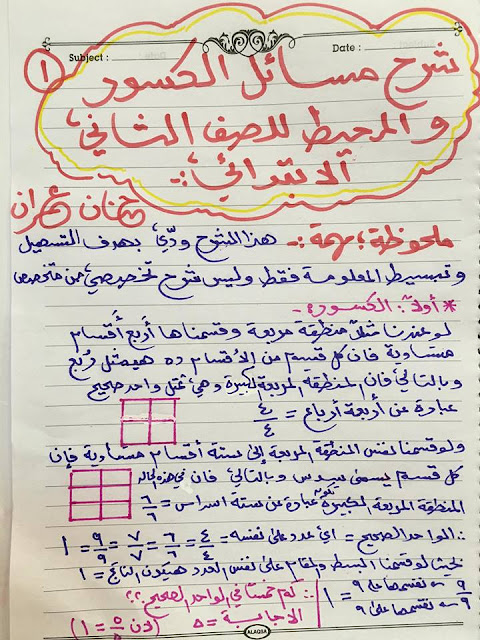 Subject :
Date :
١
شرح مسائل الكسور
والمحيط للصف الثاني
الابتدائي :-
حنان شمران
ملحوظة مهمة :- هذا الشرح ودّي بهدف التسهيل
وتبسيط المعلومة فقط وليس شرح تخصيصي من متخصص
* أولاً : الكسور :-
لو عندنا مثلاً منطقة مربعة وقسمناها أربع أقسام
متساوية فان كل قسم من الأقسام ده هيمثل رُبع
وبالتالي فان المنطقة المربعة الكبيرة وهي تمثل واحد صحيح
عبارة عن أربعة أرباع = ٤/٤
ولو قسمنا نفس المنطقة المربعة إلى ستة أقسام متساوية فإن
كل قسم يسمى سدس وبالتالي فان في هذه الحالة
المنطقة المربعة الكبيرة تكون عبارة عن ستة اسداس = ٦/٦
∴ الواحد الصحيح = اي عدد على نفسه = ٤/٤ = ٦/٦ = ٧/٧ = ٩/٩ = ١
بحيث لو قسمنا البسط والمقام على نفس العدد هيكون الناتج = ١
٩/٩ نقسمها على ٩ نقسمها على ٩ = ١
∴ كم خمساً في الواحد الصحيح ؟؟
الاجابة = ٥ (لان ٥/٥ = ١)
ALAQSA